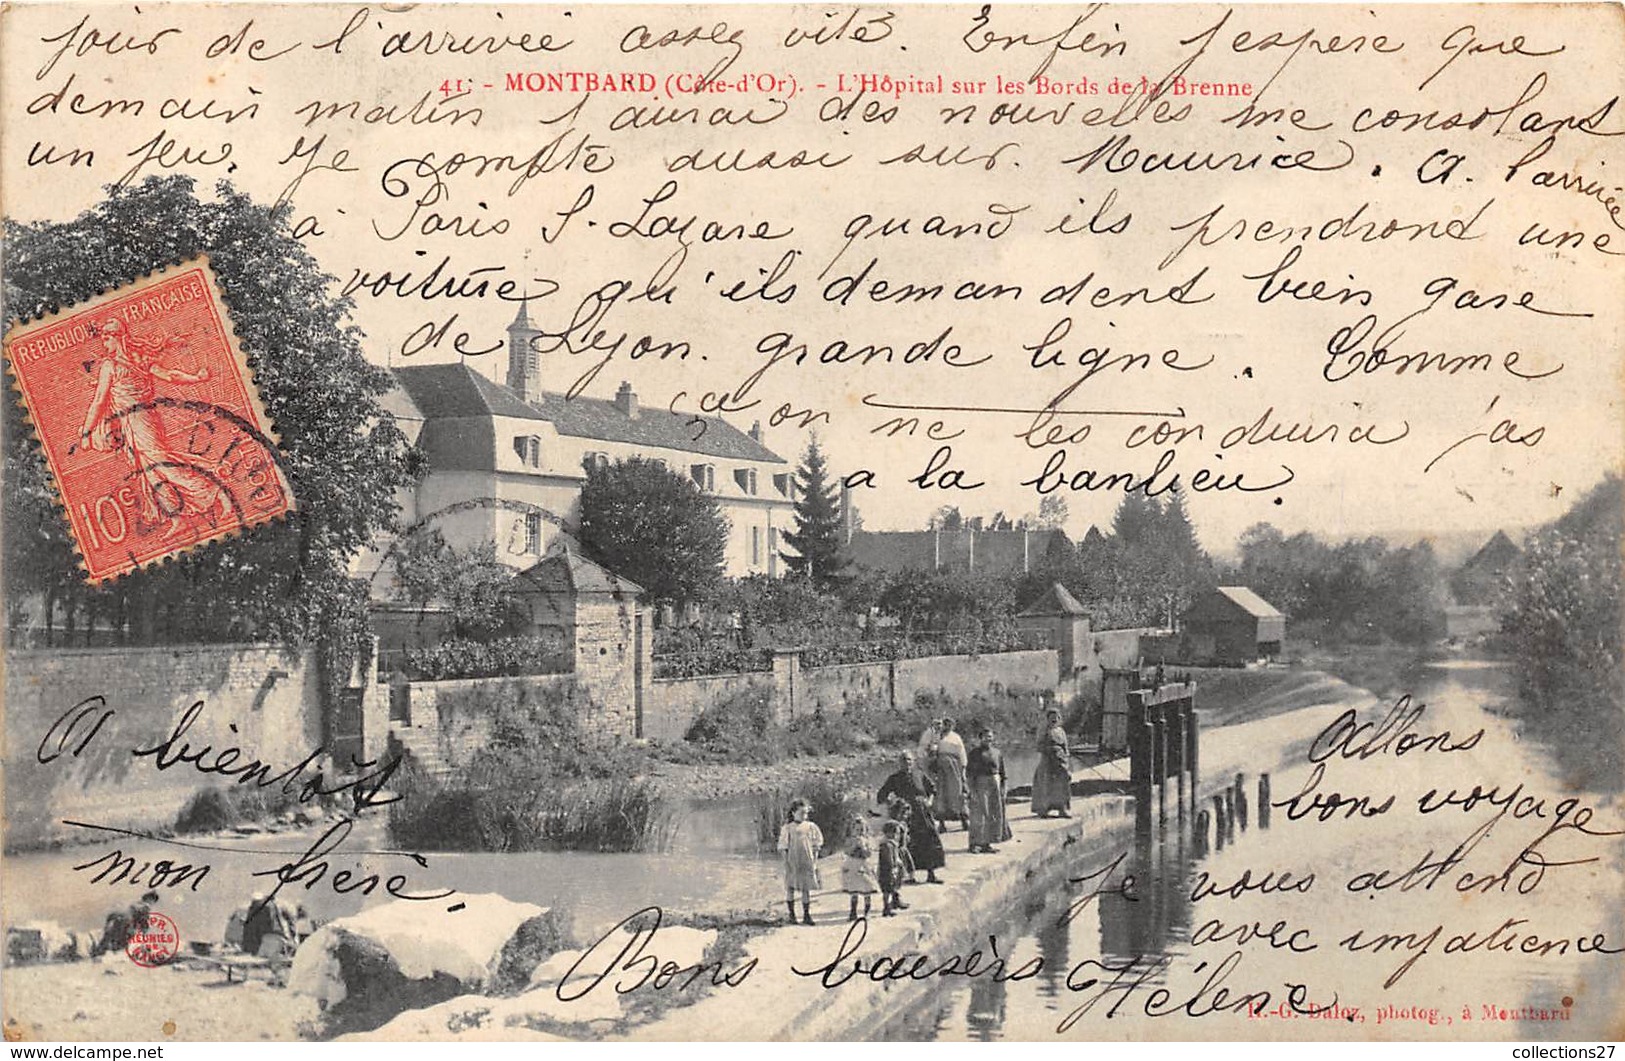 jour de l'arrivée assez vite. Enfin j'espère que
41. - MONTBARD (Côte-d'Or). - L'Hôpital sur les Bords de la Brenne
demain matin j'aurai des nouvelles me consolant
un peu. Je compte aussi sur Maurice. A l'arrivée
à Paris S-Lazare quand ils prendront une
voiture qu'ils demandent bien gare
de Lyon. grande ligne. Comme
ça on ne les conduira pas
a la banlieu.
REPUBLIQUE FRANÇAISE
10c
POSTES
A bientôt
mon frère.
Allons
bons voyage
je vous attend
avec impatience
Bons baisers Hélène.
IMPR. REUNIES DE NANCY
H.-G. Daloz, photog., à Montbard
collections27